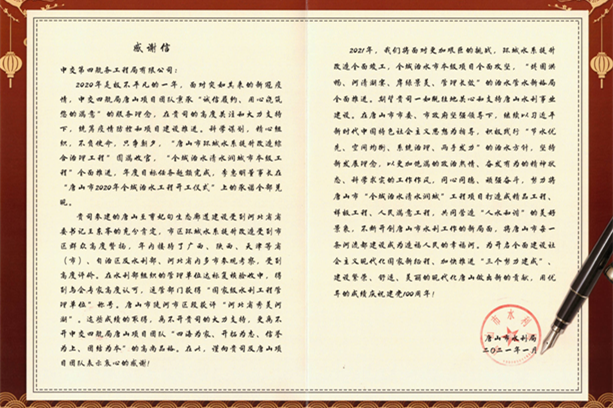 感谢信
中交第四航务工程局有限公司：
2020年是极不平凡的一年，面对突如其来的新冠疫
情，中交四航局唐山项目团队秉承“诚信履约，用心浇筑
您的满意”的服务理念，在贵司的高度关注和大力支持
下，统筹疫情防控和项目建设推进。科学谋划，精心组
织，不负使命，只争朝夕，“唐山市环城水系提升改造综
合治理工程”圆满收官，“全域治水清水润城市本级工
程”全面推进，年度目标任务超额完成，李惠明董事长在
“唐山市2020年全域治水工程开工仪式”上的承诺全部兑
现。
贵司参建的唐山主市妃旬生态廊道建设受到河北省省
委书记王东峰的充分肯定，市区环城水系提升改造受到市
区群众高度赞扬，年内接待了广西、陕西、天津等省
（市）、自治区及水利部、河北省内多市参观考察，受到
高度评价。在水利部组织的管理单位达标复核验收中，得
到与会专家高度认可，连誉部门获得“国家级水利工程管
理单位”称号。唐山市陡河市区段获评“河北省秀美河
湖”。这些成绩的取得，离不开贵司的大力支持，更离不
开中交四航局唐山项目团队“四海为家、开拓为志、信誉
为上、团结为本”的高尚品格。在此，谨向贵司及唐山项
目团队表示衷心的感谢！
2021年，我们将面对更加艰巨的挑战，环城水系提升
改造全面竣工，全域治水市本级项目全面攻坚，“排涝洪
畅、河清湖宴、岸绿景美、管理长效”的治水管水新格局
全面推进。期望贵司一如既往地关心和支持唐山水利事业
建设。在唐山市市委、市政府坚强领导下，继续以习近平
新时代中国特色社会主义思想为指导，积极践行“节水优
先、空间均衡、系统治理、两手发力”的治水方针，坚持
新发展理念，以更加饱满的政治热情、奋发有为的精神状
态、科学求实的工作作风，同心同德、顽强奋斗，努力将
唐山市“全域治水清水润城”工程项目打造成精品工程、
样板工程、人民满意工程，共同营造“人水和谐”的美好
景象，不断开创唐山市水利工作的新局面，将唐山市每一
条河流都建设成为造福人民的幸福河。为开启全面建设社
会主义现代化国家新征程、加快推进“三个努力建成”、
建设繁荣、舒适、美丽的现代化唐山做出新的贡献，用优
异的成绩庆祝建党100周年！
唐山市水利局
二〇二一年一月